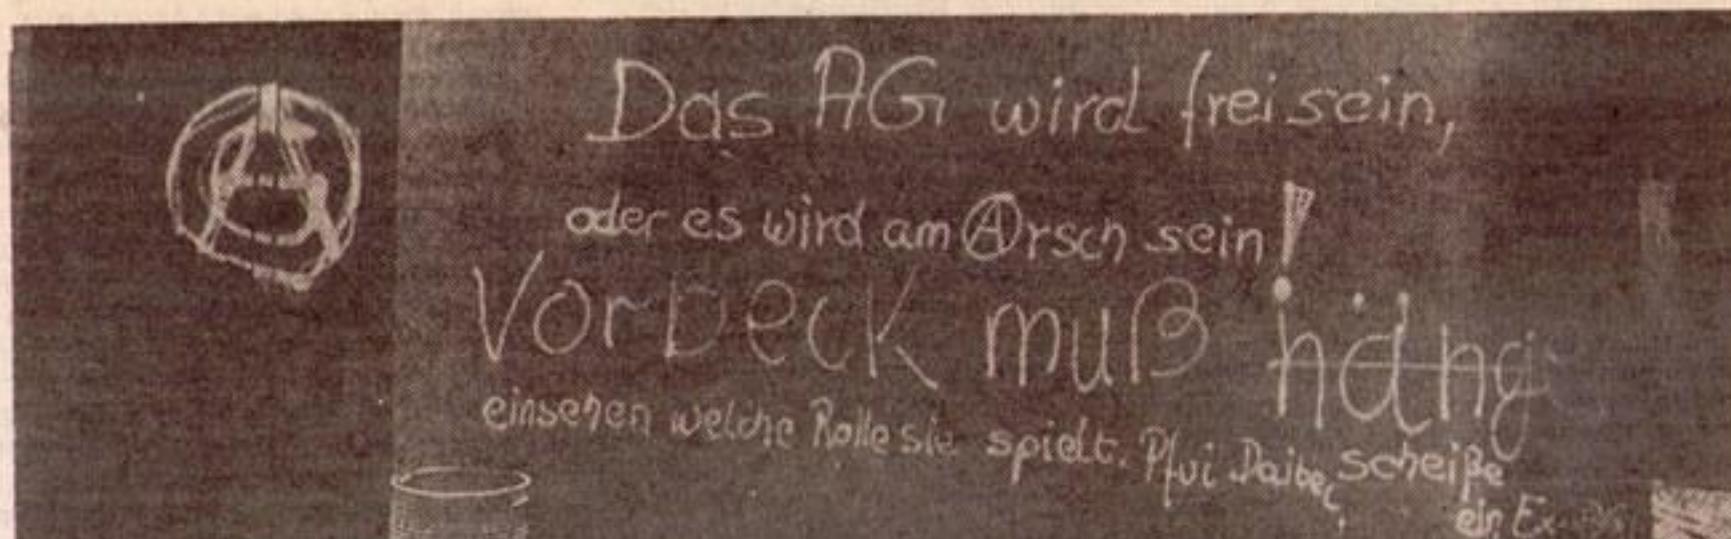 Das AG wird frei sein,
oder es wird am Arsch sein!
Vorbeck muß häng
einsehen welche Rolle sie spielt. Pfui Daibel, scheiße
ein